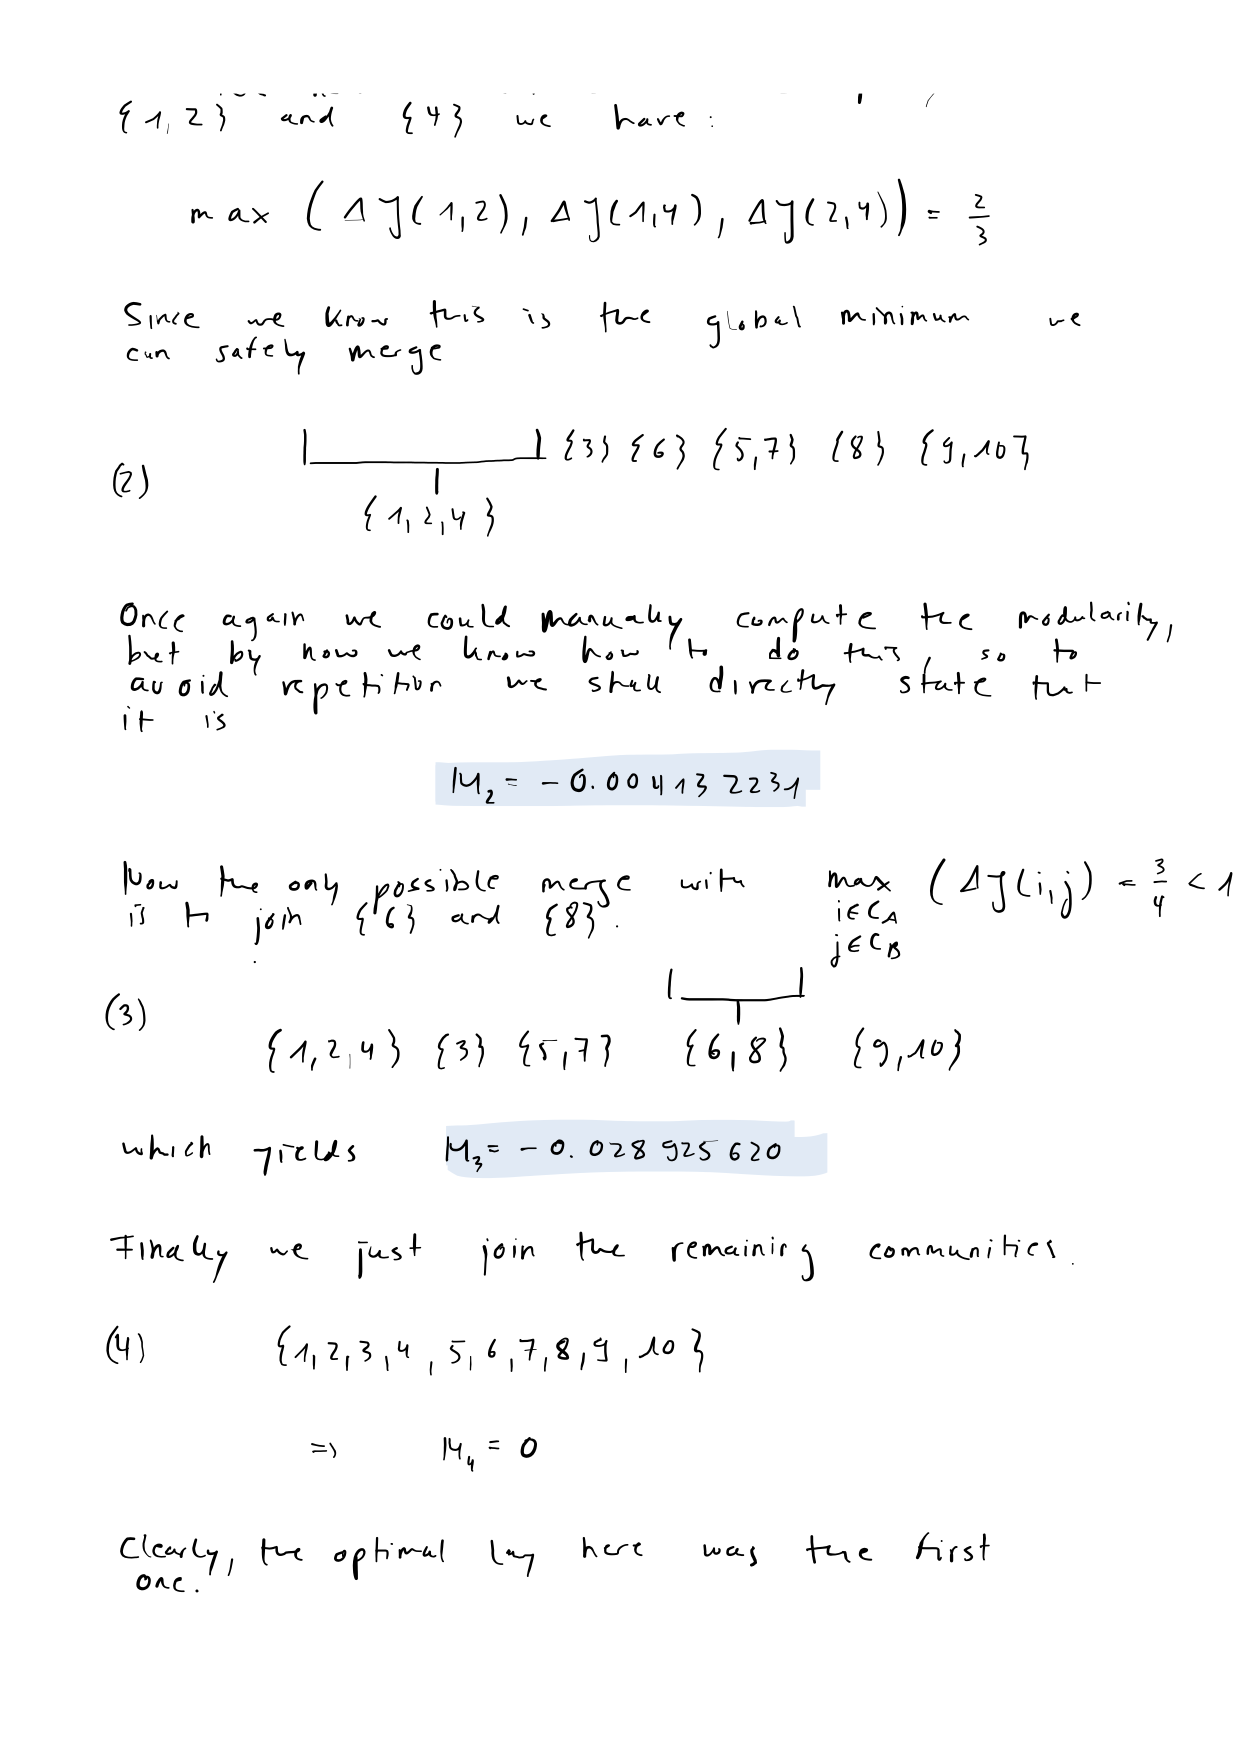 {1,2} and {4} we have:
max (ΔJ(1,2), ΔJ(1,4), ΔJ(2,4)) = 2/3
Since we know this is the global minimum we
can safely merge
{3} {6} {5,7} {8} {9,10}
(2)
{1,2,4}
Once again we could manually compute the modularity,
but by now we know how to do this, so to
avoid repetition we shall directly state that
it is
M₂ = -0.004132231
Now the only possible merge with max (ΔJ(i,j) = 3/4 < 1
i∈C_A
is to join {6} and {8}.
j∈C_B
(3)
{1,2,4} {3} {5,7} {6,8} {9,10}
which yields M₃ = -0.028925620
Finally we just join the remaining communities.
(4) {1,2,3,4,5,6,7,8,9,10}
=> M₄ = 0
Clearly, the optimal here was the first
one.